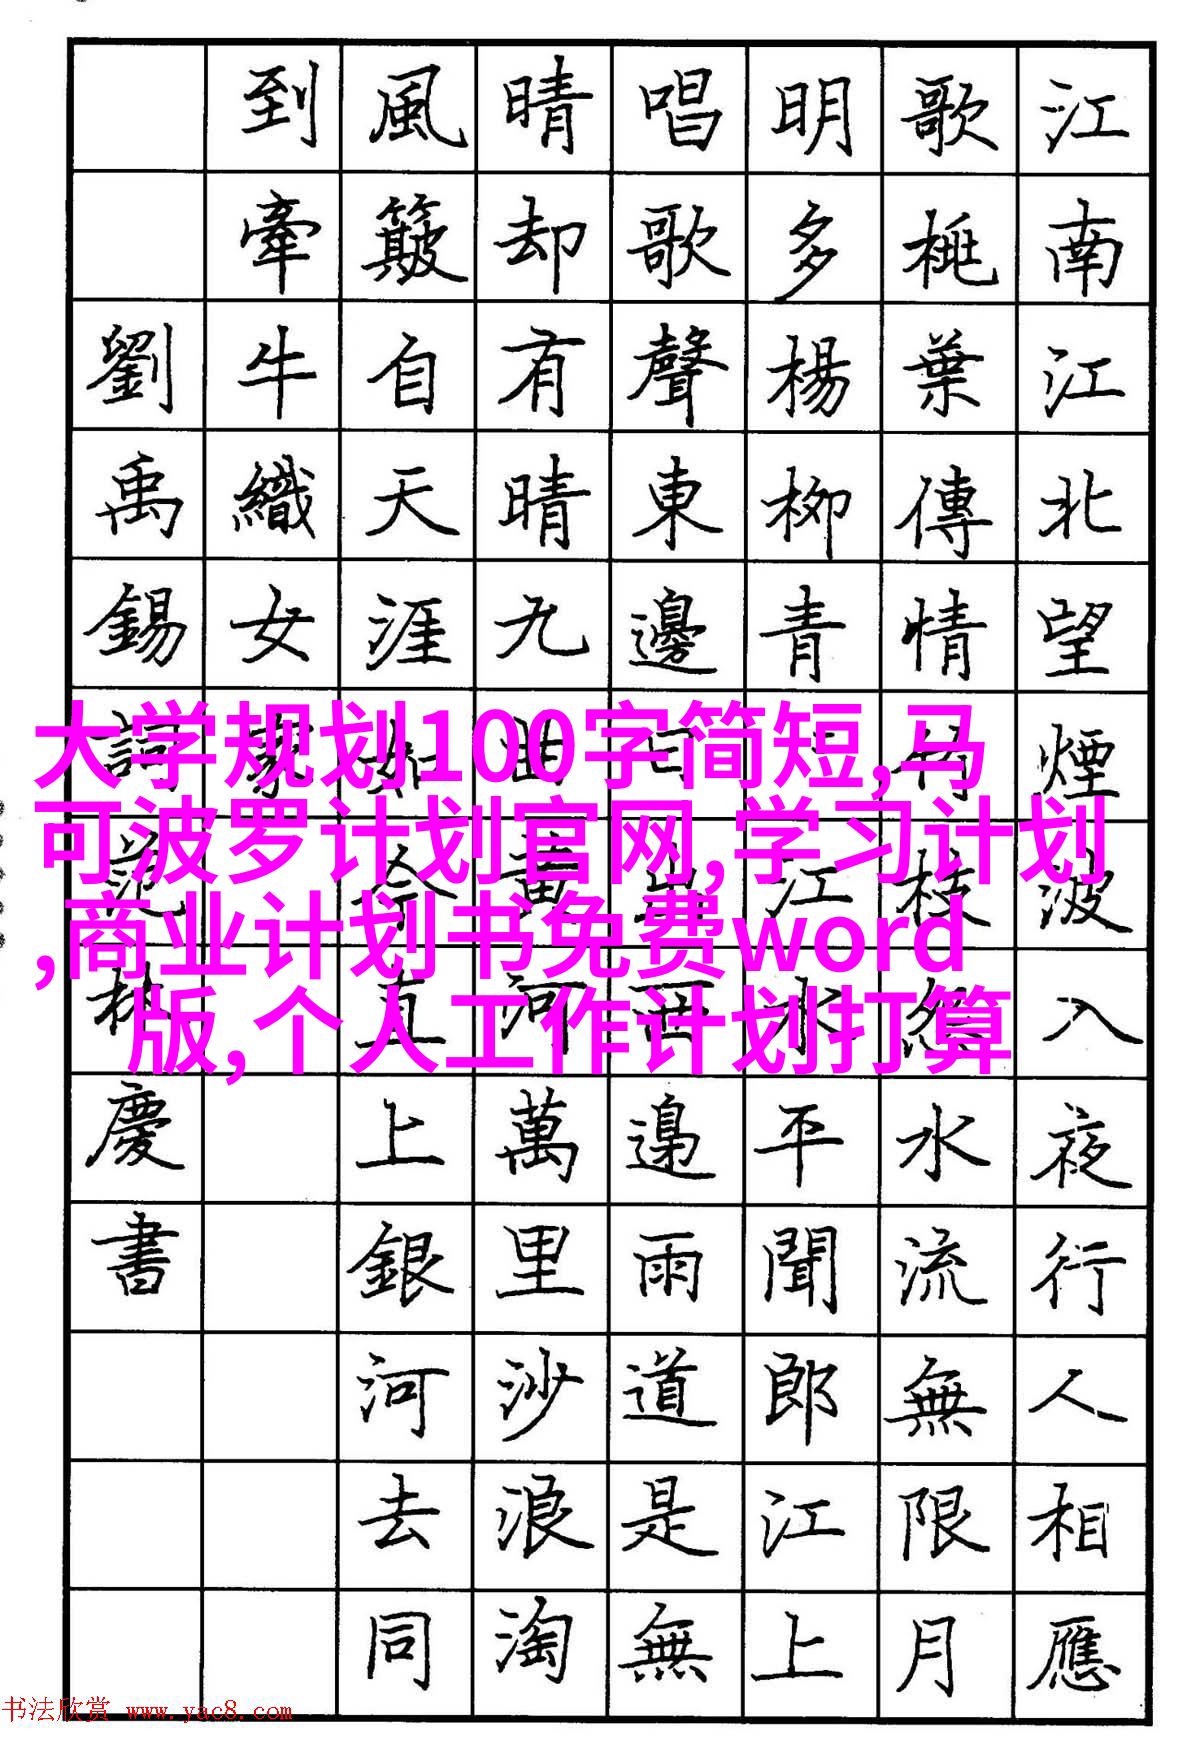 江南江北望煙波入夜行人相應
歌桃葉傳情竹枝怨水流無限月
明多楊柳青江水平聞郎江上
唱歌聲東邊日出西邊雨道是無
晴却有晴九曲黄河萬里沙浪淘
風簸自天涯如今直上銀河去同
到牽牛織女家
劉禹錫詞范林慶書
大学规划100字简短,马
可波罗计划官网,学习计划
,商业计划书免费word
版,个人工作计划打算
书法欣赏 www.yac8.com